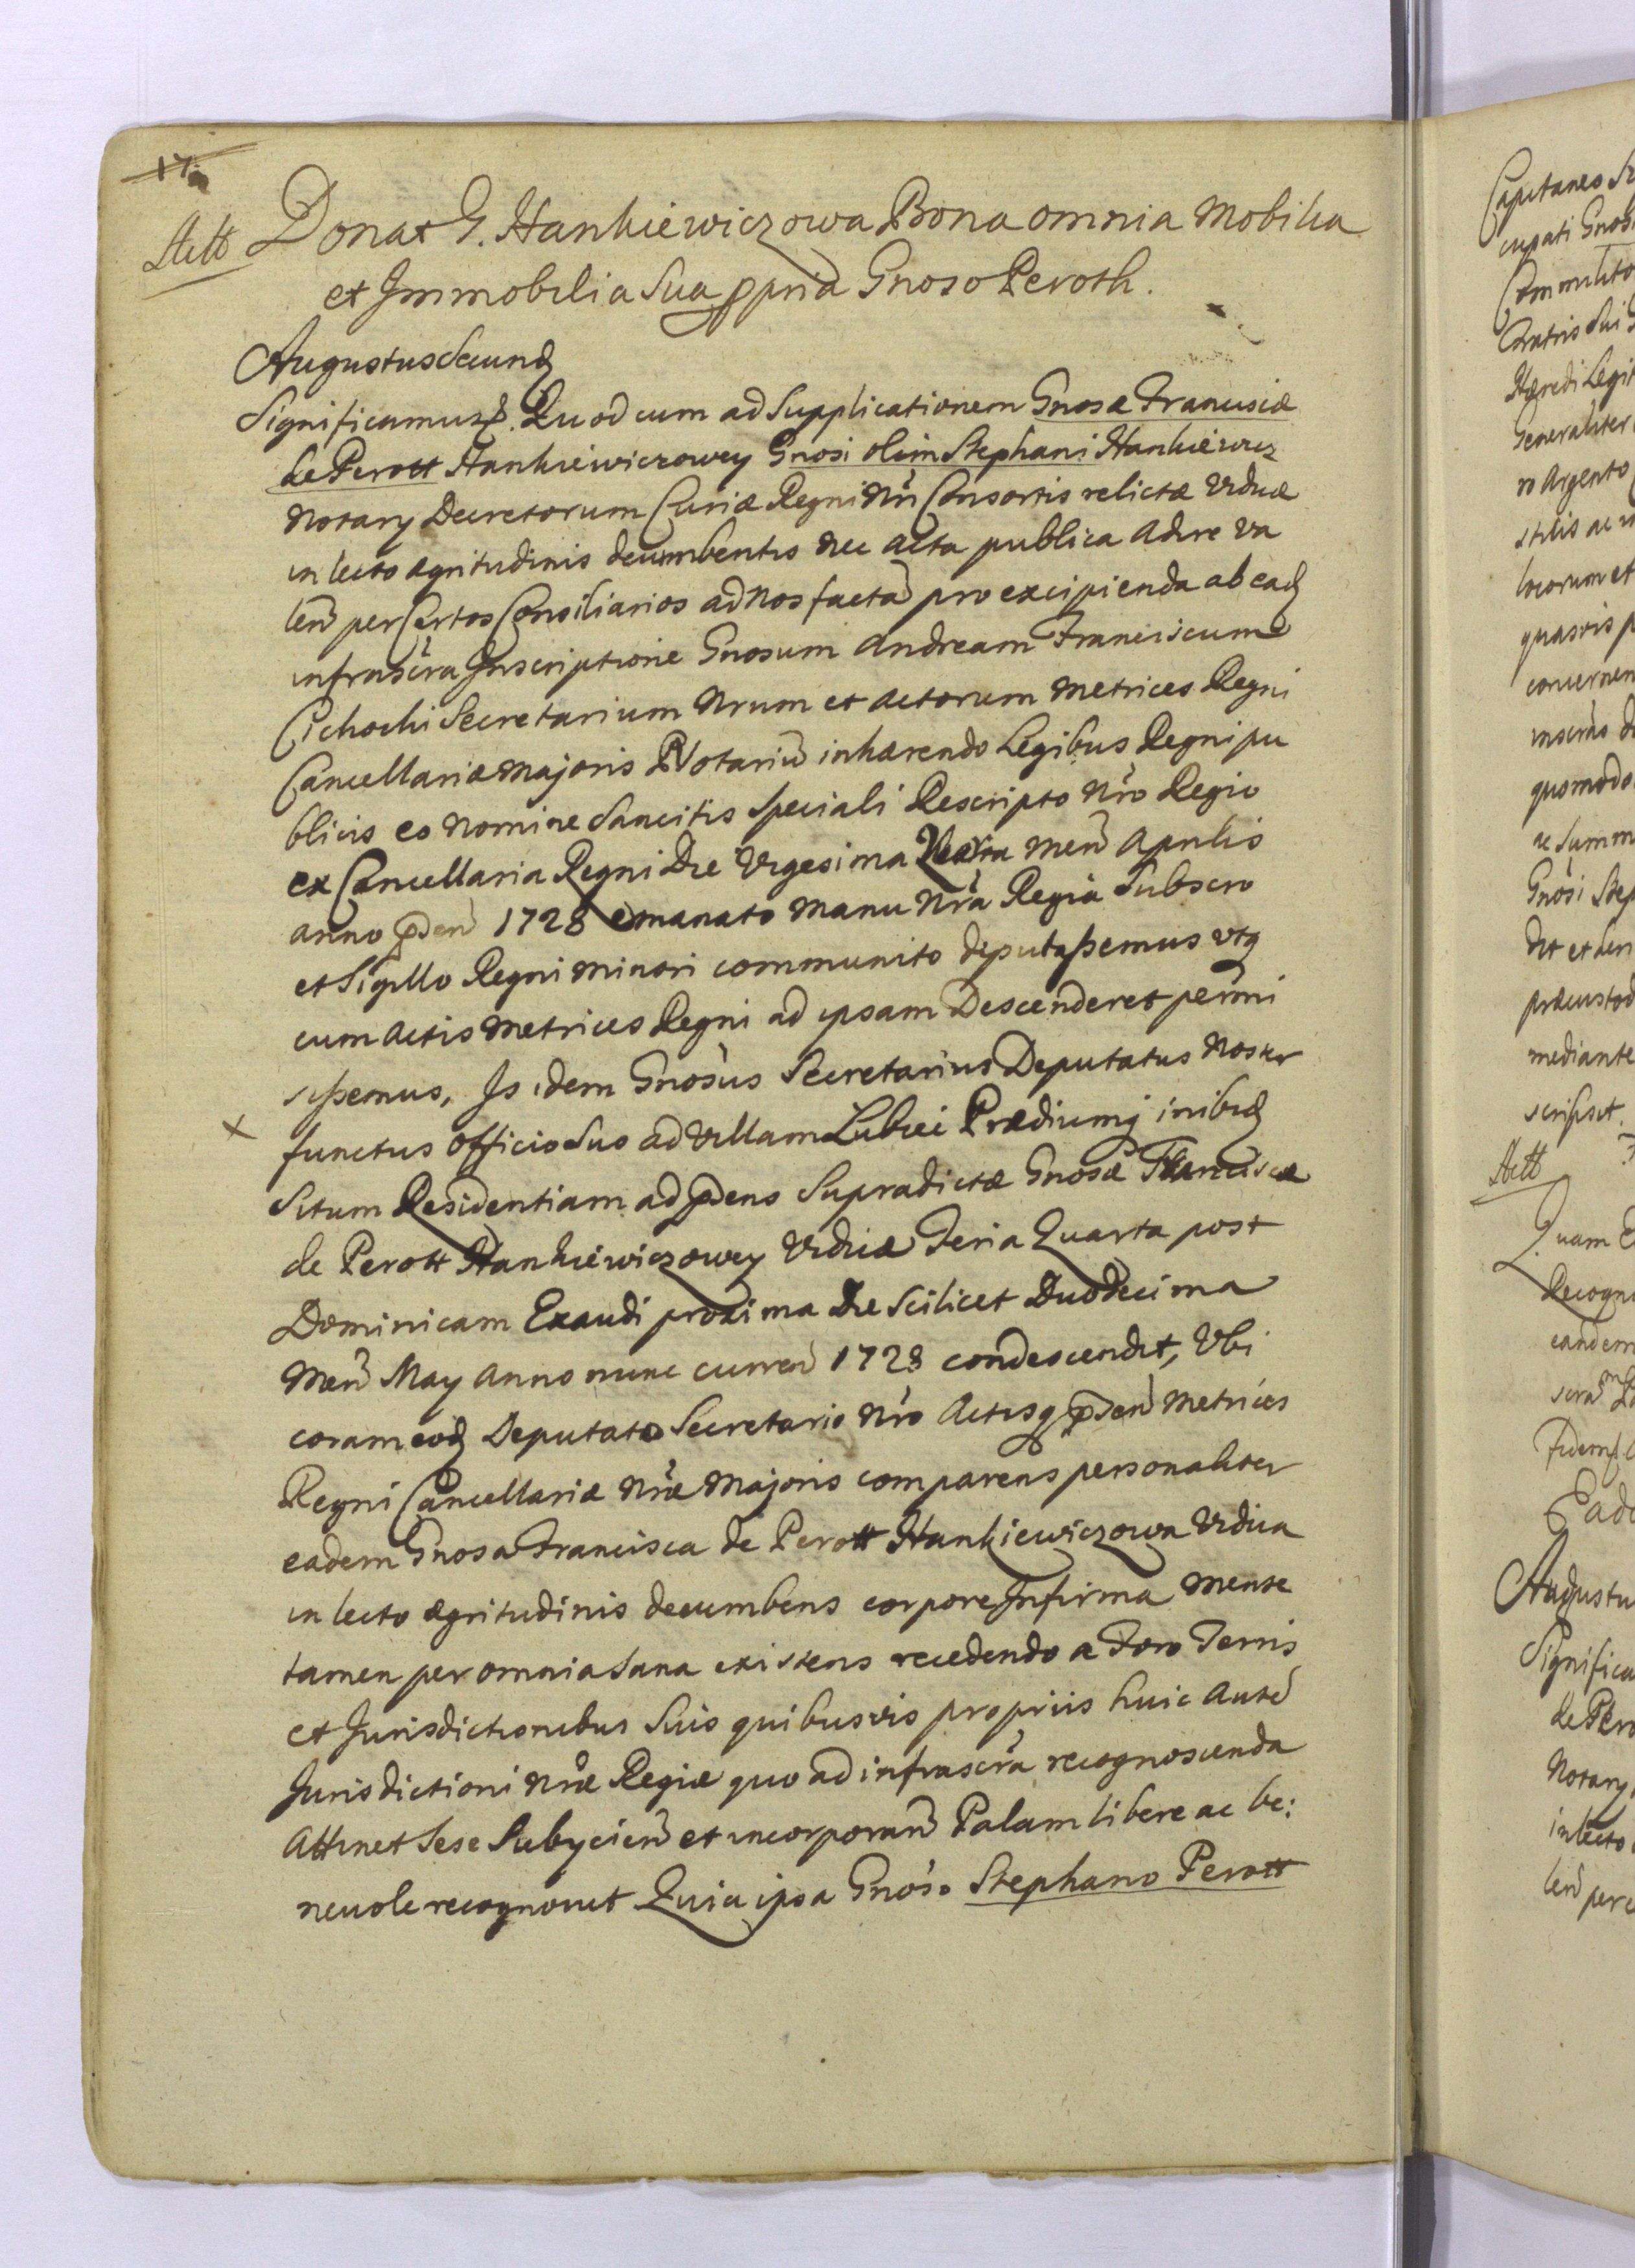 17.
Actt
Donat G. Hankiewiczowa Bona omnia Mobilia
et Immobilia Sua ppria Gnoso Peroth.
Augustus Secundꝫ
Significamus &. Quod cum ad Supplicationem Gnosæ Franciscæ
de Perott Hankiewiczowey Gnosi olim Stephani Hankiewicz
Notary Decretorum Curiæ Regni Nri Consortis relictæ Viduæ
in lecto ægritudinis decumbentis nec acta publica adire va
len per Certos Consiliarios ad Nos facta pro excipienda ab eadꝫ
infrascra Inscriptione Gnosum Andream Franciscum
Cichocki Secretarium Nrum et Actorum Metrices Regni
Cancellariæ Majoris PNotariu inhærendo Legibus Regni pu
blicis eo nomine Sancitis Speciali Rescripto Nro Regio
ex Cancellaria Regni Die Vigesima Men Aprilis
anno pden 1728 emanato manu Nra Regia Subscro
et Sigillo Regni minori communito deputassemus utq
cum Actis Metrices Regni ad ipsam Descenderet permi
sissemus, Is idem Gnosus Secretarius Deputatus Noster
x functus officio Suo ad Villam Lubiei Prædiumq inibidꝫ
Situm Residentiam ad pdens Supradictæ Gnosæ Franciscæ
de Perott Hankiewiczowey Viduæ Feria Quarta post
Dominicam Exaudi proxima Die Scilicet Duodecima
Men May Anno nunc curren 1728 condescendit, Ubi
coram eodꝫ Deputato Secretario Nro Actisq pden Metrices
Regni Cancellariæ Nræ Majoris comparens personaliter
eadem Gnosa Francisca de Perott Hankiewiczowa Vidua
in lecto ægritudinis decumbens corpore Infirma mente
tamen per omnia Sana existens recedendo a Foro Terris
et Jurisdictionibus Suis quibusvis propriis huic Aute
Jurisdictioni Nræ Regiæ quo ad infrascra recognoscenda
Attinet Sese Subycien et incorporan Palam libere ac be:
nevole recognovit Quia ipsa Gnoso Stephano Perott
Capitaneo
cupati Gnosi
Fratris Sui
Hæredi Legit
Generaliter
ro Argento
locorum et
quasvis p
concernen
quomodo
Gnosi Step
dit et
mediante
scripsit.
Actt
Quam
Recogn
eandem
Eade
Augustu
Significa
de Pero
Notary
in lecto
len per